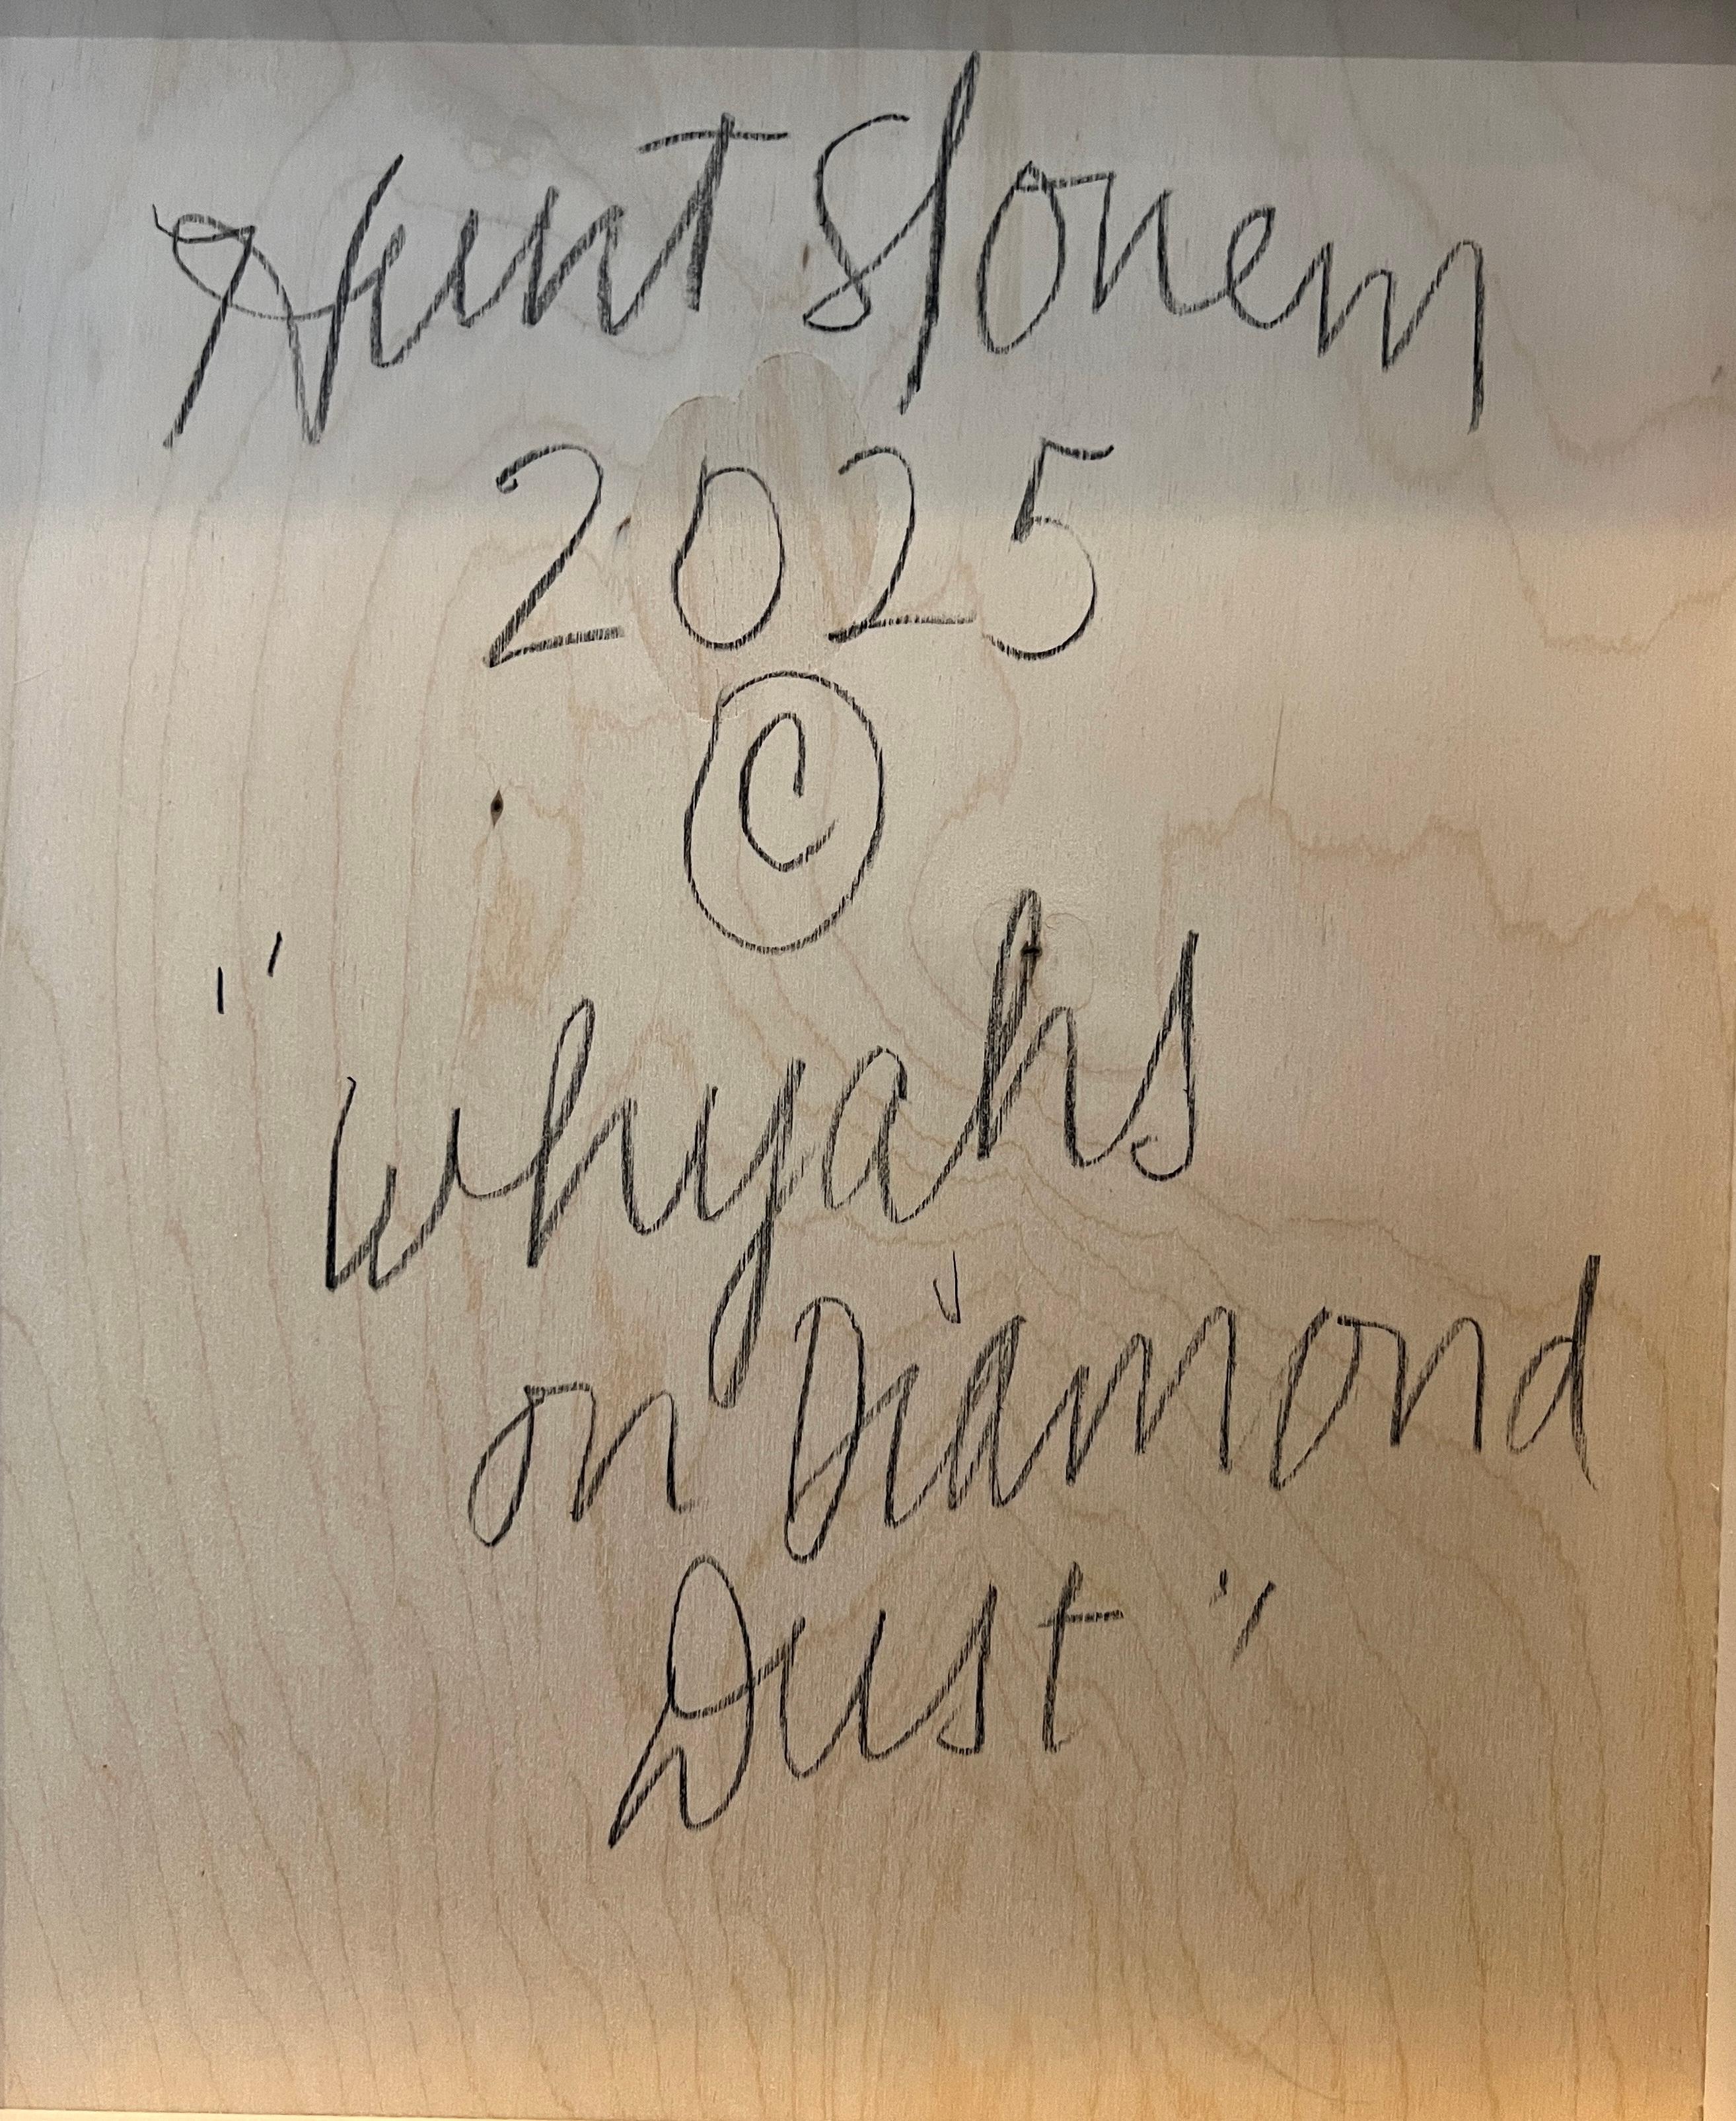 Hunt Slonem
2025
©
"Whyahs
on Diamond
Dust"